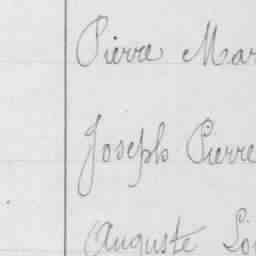 Pierre Mar
Joseph Pierre
Auguste Lou